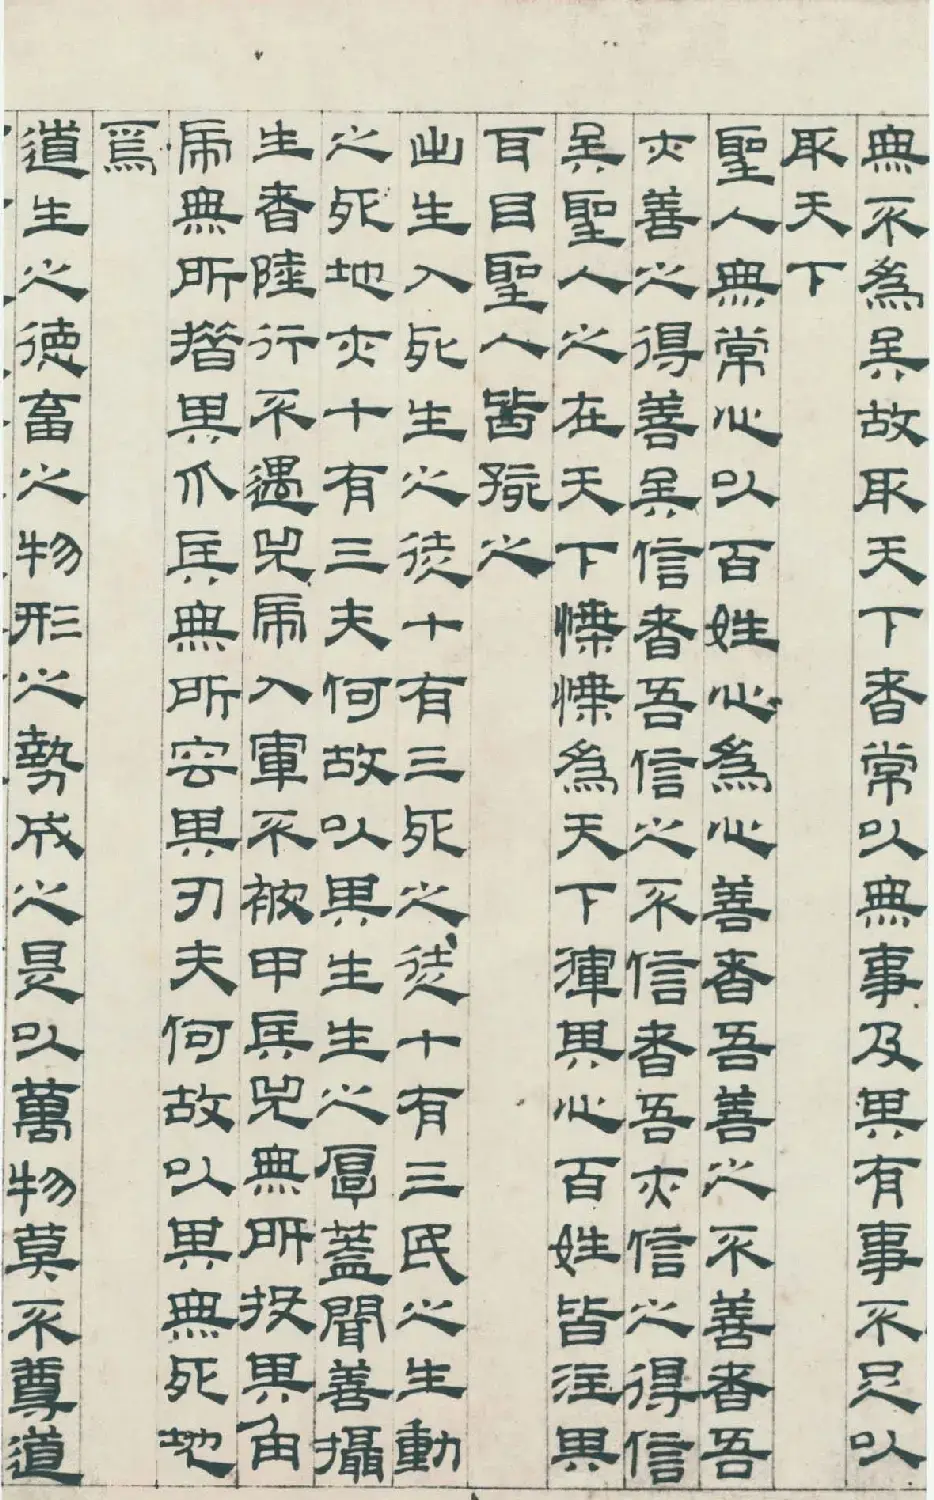 無不為矣故取天下者常以無事及其有事不足以
取天下
聖人無常心以百姓心為心善者吾善之不善者吾
亦善之得善矣信者吾信之不信者吾亦信之得信
矣聖人之在天下惵惵為天下渾其心百姓皆注其
耳目聖人皆孩之
出生入死生之徒十有三死之徒十有三民之生動
之死地亦十有三夫何故以其生生之厚蓋聞善攝
生者陸行不遇兕虎入軍不被甲兵兕無所投其角
虎無所措其爪兵無所容其刃夫何故以其無死地
焉
道生之德畜之物形之勢成之是以萬物莫不尊道